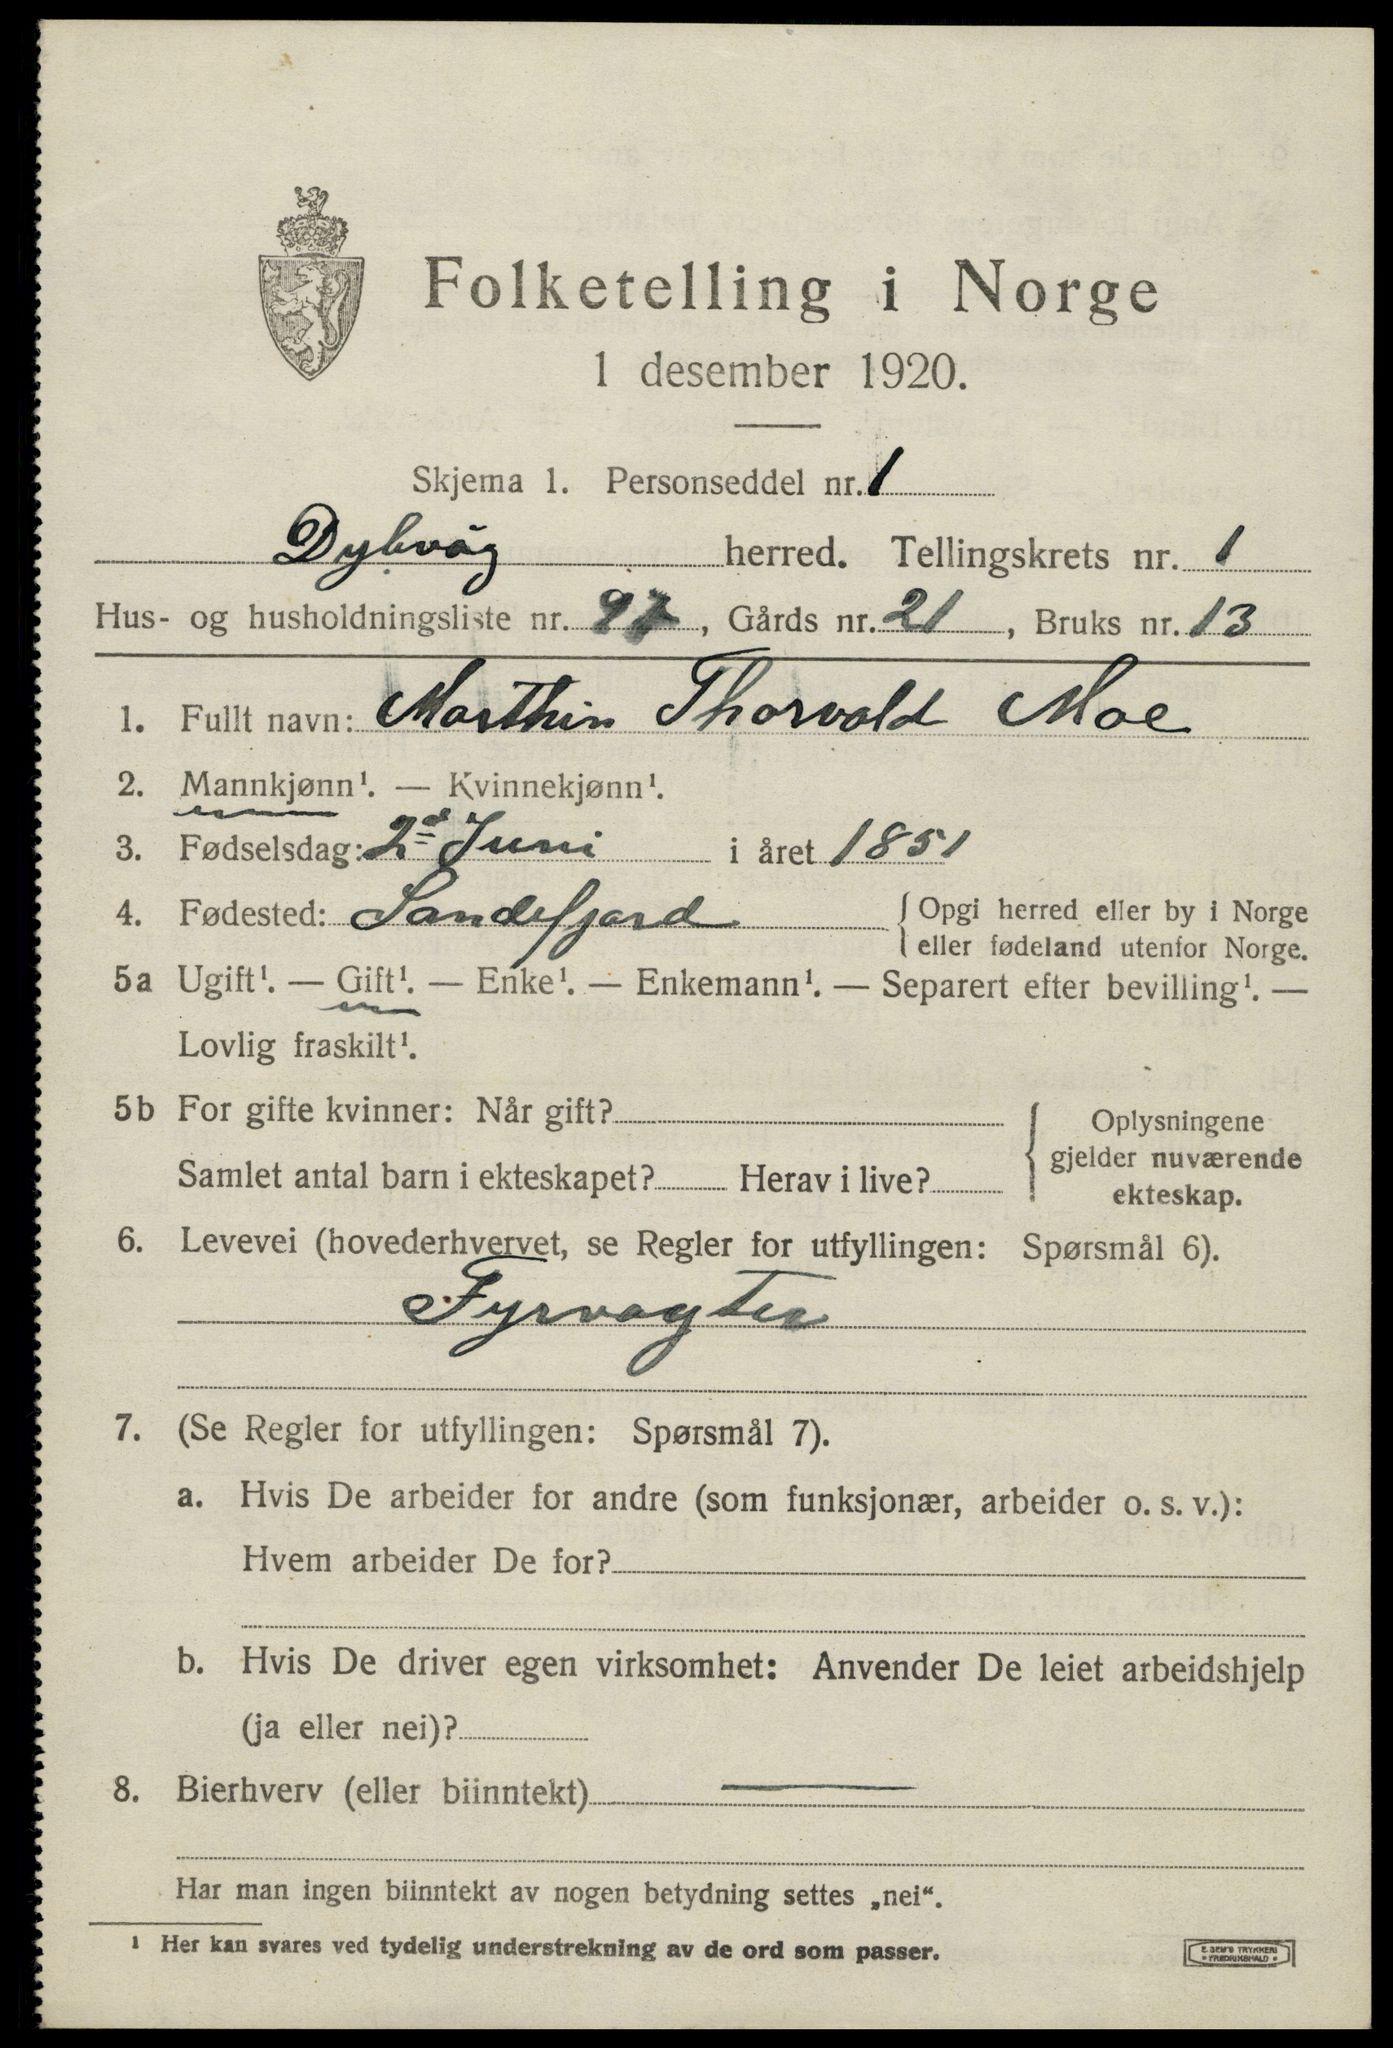 Folketelling i Norge
1 desember 1920.
Skjema 1. Personseddel nr. 1
Dybvåg herred. Tellingskrets nr. 1
Hus- og husholdningsliste nr. 97, Gårds nr. 21, Bruks nr. 13
1. Fullt navn: Marthin Thorvald Moe
2. Mannkjønn¹. — Kvinnekjønn¹.
3. Fødselsdag: 2d Juni i året 1851
4. Fødested: Sandefjord { Opgi herred eller by i Norge
eller fødeland utenfor Norge.
5a Ugift¹. — Gift¹. — Enke¹. — Enkemann¹. — Separert efter bevilling¹. —
Lovlig fraskilt¹.
5b For gifte kvinner: Når gift? { Oplysningene
gjelder nuværende
Samlet antal barn i ekteskapet? Herav i live? ekteskap.
6. Levevei (hovederhvervet, se Regler for utfyllingen: Spørsmål 6).
Fyrvagter
7. (Se Regler for utfyllingen: Spørsmål 7).
a. Hvis De arbeider for andre (som funksjonær, arbeider o. s. v.):
Hvem arbeider De for?
b. Hvis De driver egen virksomhet: Anvender De leiet arbeidshjelp
(ja eller nei)?
8. Bierhverv (eller biinntekt) —
Har man ingen biinntekt av nogen betydning settes „nei“.
¹ Her kan svares ved tydelig understrekning av de ord som passer.
E. SEM'S TRYKKERI
FREDRIKSHALD